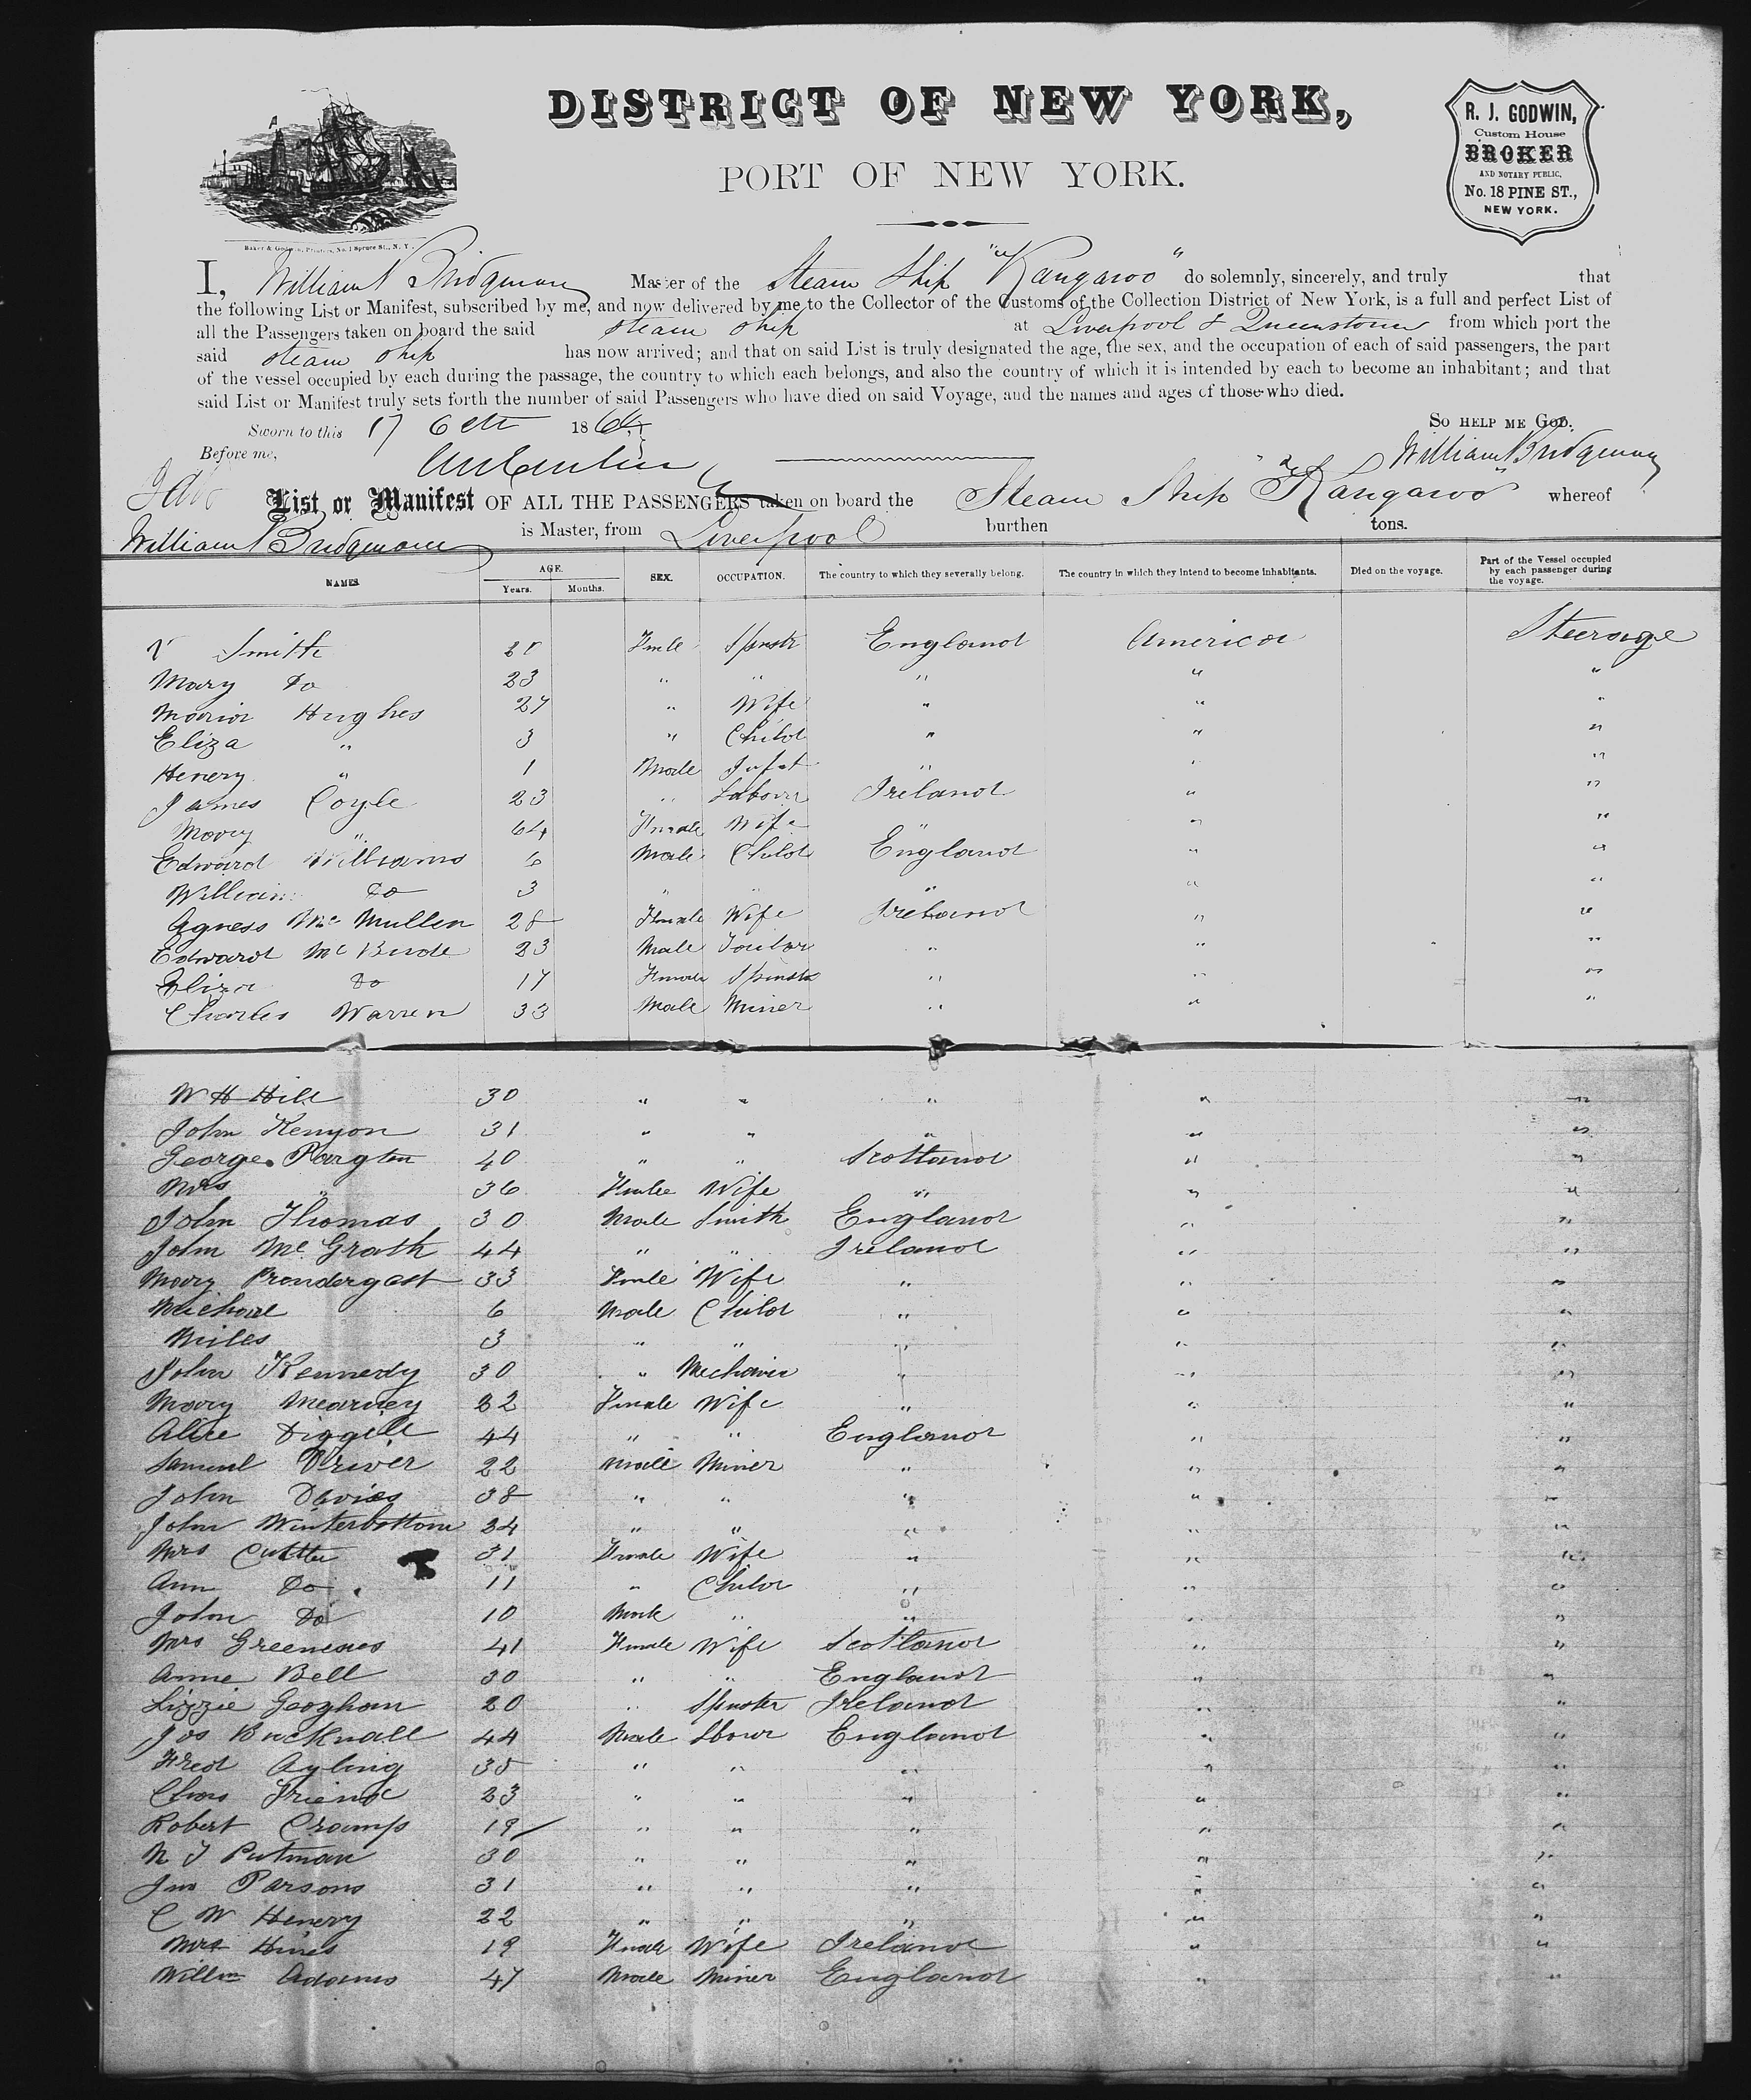 DISTRICT OF NEW YORK,
PORT OF NEW YORK.
R. J. GODWIN,
Custom House
BROKER
AND NOTARY PUBLIC,
No. 18 PINE ST.,
NEW YORK.
Baker & Godwin, Printers, No. 1 Spruce St., N. Y.
I, William Bridgman Master of the Steam Ship "Kangaroo" do solemnly, sincerely, and truly that
the following List or Manifest, subscribed by me, and now delivered by me to the Collector of the Customs of the Collection District of New York, is a full and perfect List of
all the Passengers taken on board the said steam ship at Liverpool & Queenstown from which port the
said steam ship has now arrived; and that on said List is truly designated the age, the sex, and the occupation of each of said passengers, the part
of the vessel occupied by each during the passage, the country to which each belongs, and also the country of which it is intended by each to become an inhabitant; and that
said List or Manifest truly sets forth the number of said Passengers who have died on said Voyage, and the names and ages of those who died.
Sworn to this 17 Octr 1864 SO HELP ME GOD.
Before me, William Bridgman
List or Manifest OF ALL THE PASSENGERS taken on board the Steam Ship "Kangaroo" whereof
William Bridgman is Master, from Liverpool burthen tons.
NAMES. AGE. Years. Months. SEX. OCCUPATION. The country to which they severally belong. The country in which they intend to become inhabitants. Died on the voyage. Part of the Vessel occupied by each passenger during the voyage.
Smith Fmle Spinstr England America Steerage
Mary Do 23 " " " " "
Maria Hughes 27 " Wife " " "
Eliza " 3 " Child " " "
Henery " 1 Male Infat " " "
James Coyle 23 " Labour Ireland " "
Mary " 64 Fmale Wife " " "
Edward Williams 6 Male Child England " "
William Do 3 " " " " "
Agness Mc Mullen 28 Fmale Wife Ireland " "
Edward Mc 23 Male " " "
Eliza Do 17 Fmale Spinstr " " "
Charles Warren 33 Male Miner " " "
W H Hill 30 " " " " "
John Kenyon 31 " " " " "
George 40 " " Scotland " "
Mrs " 36 Fmle Wife " " "
John Thomas 30 Male Smith England " "
John Mc Grath 44 " " Ireland " "
Mary Prendergast 33 Fmle Wife " " "
Michael 6 Male Child " " "
Miles 3 " " " " "
John Kennedy 30 " Mechanic " " "
Mary Mearney 22 Fmale Wife " " "
Alice Diggell 44 " " England " "
Samuel Driver 22 Male Miner " " "
John Davies 38 " " " " "
John Winterbottom 34 " " " " "
Mrs Cutter 31 Fmale Wife " " "
Ann Do 11 " Child " " "
John Do 10 Male " " " "
Mrs 41 Fmale Wife Scotland " "
Anne Bell 30 " " England " "
Lizzie Geoghan 20 " Spinster Ireland " "
Jos Bucknall 44 Male Lbour England " "
Fred Ayling 35 " " " " "
Chas Friend 23 " " " " "
Robert Cramp 19 " " " " "
N J Putman 30 " " " " "
Jno Parsons 31 " " " " "
C W Henery 22 " " " " "
Mrs Hines 19 Fmale Wife Ireland " "
Willm Adams 47 Male Miner England " "